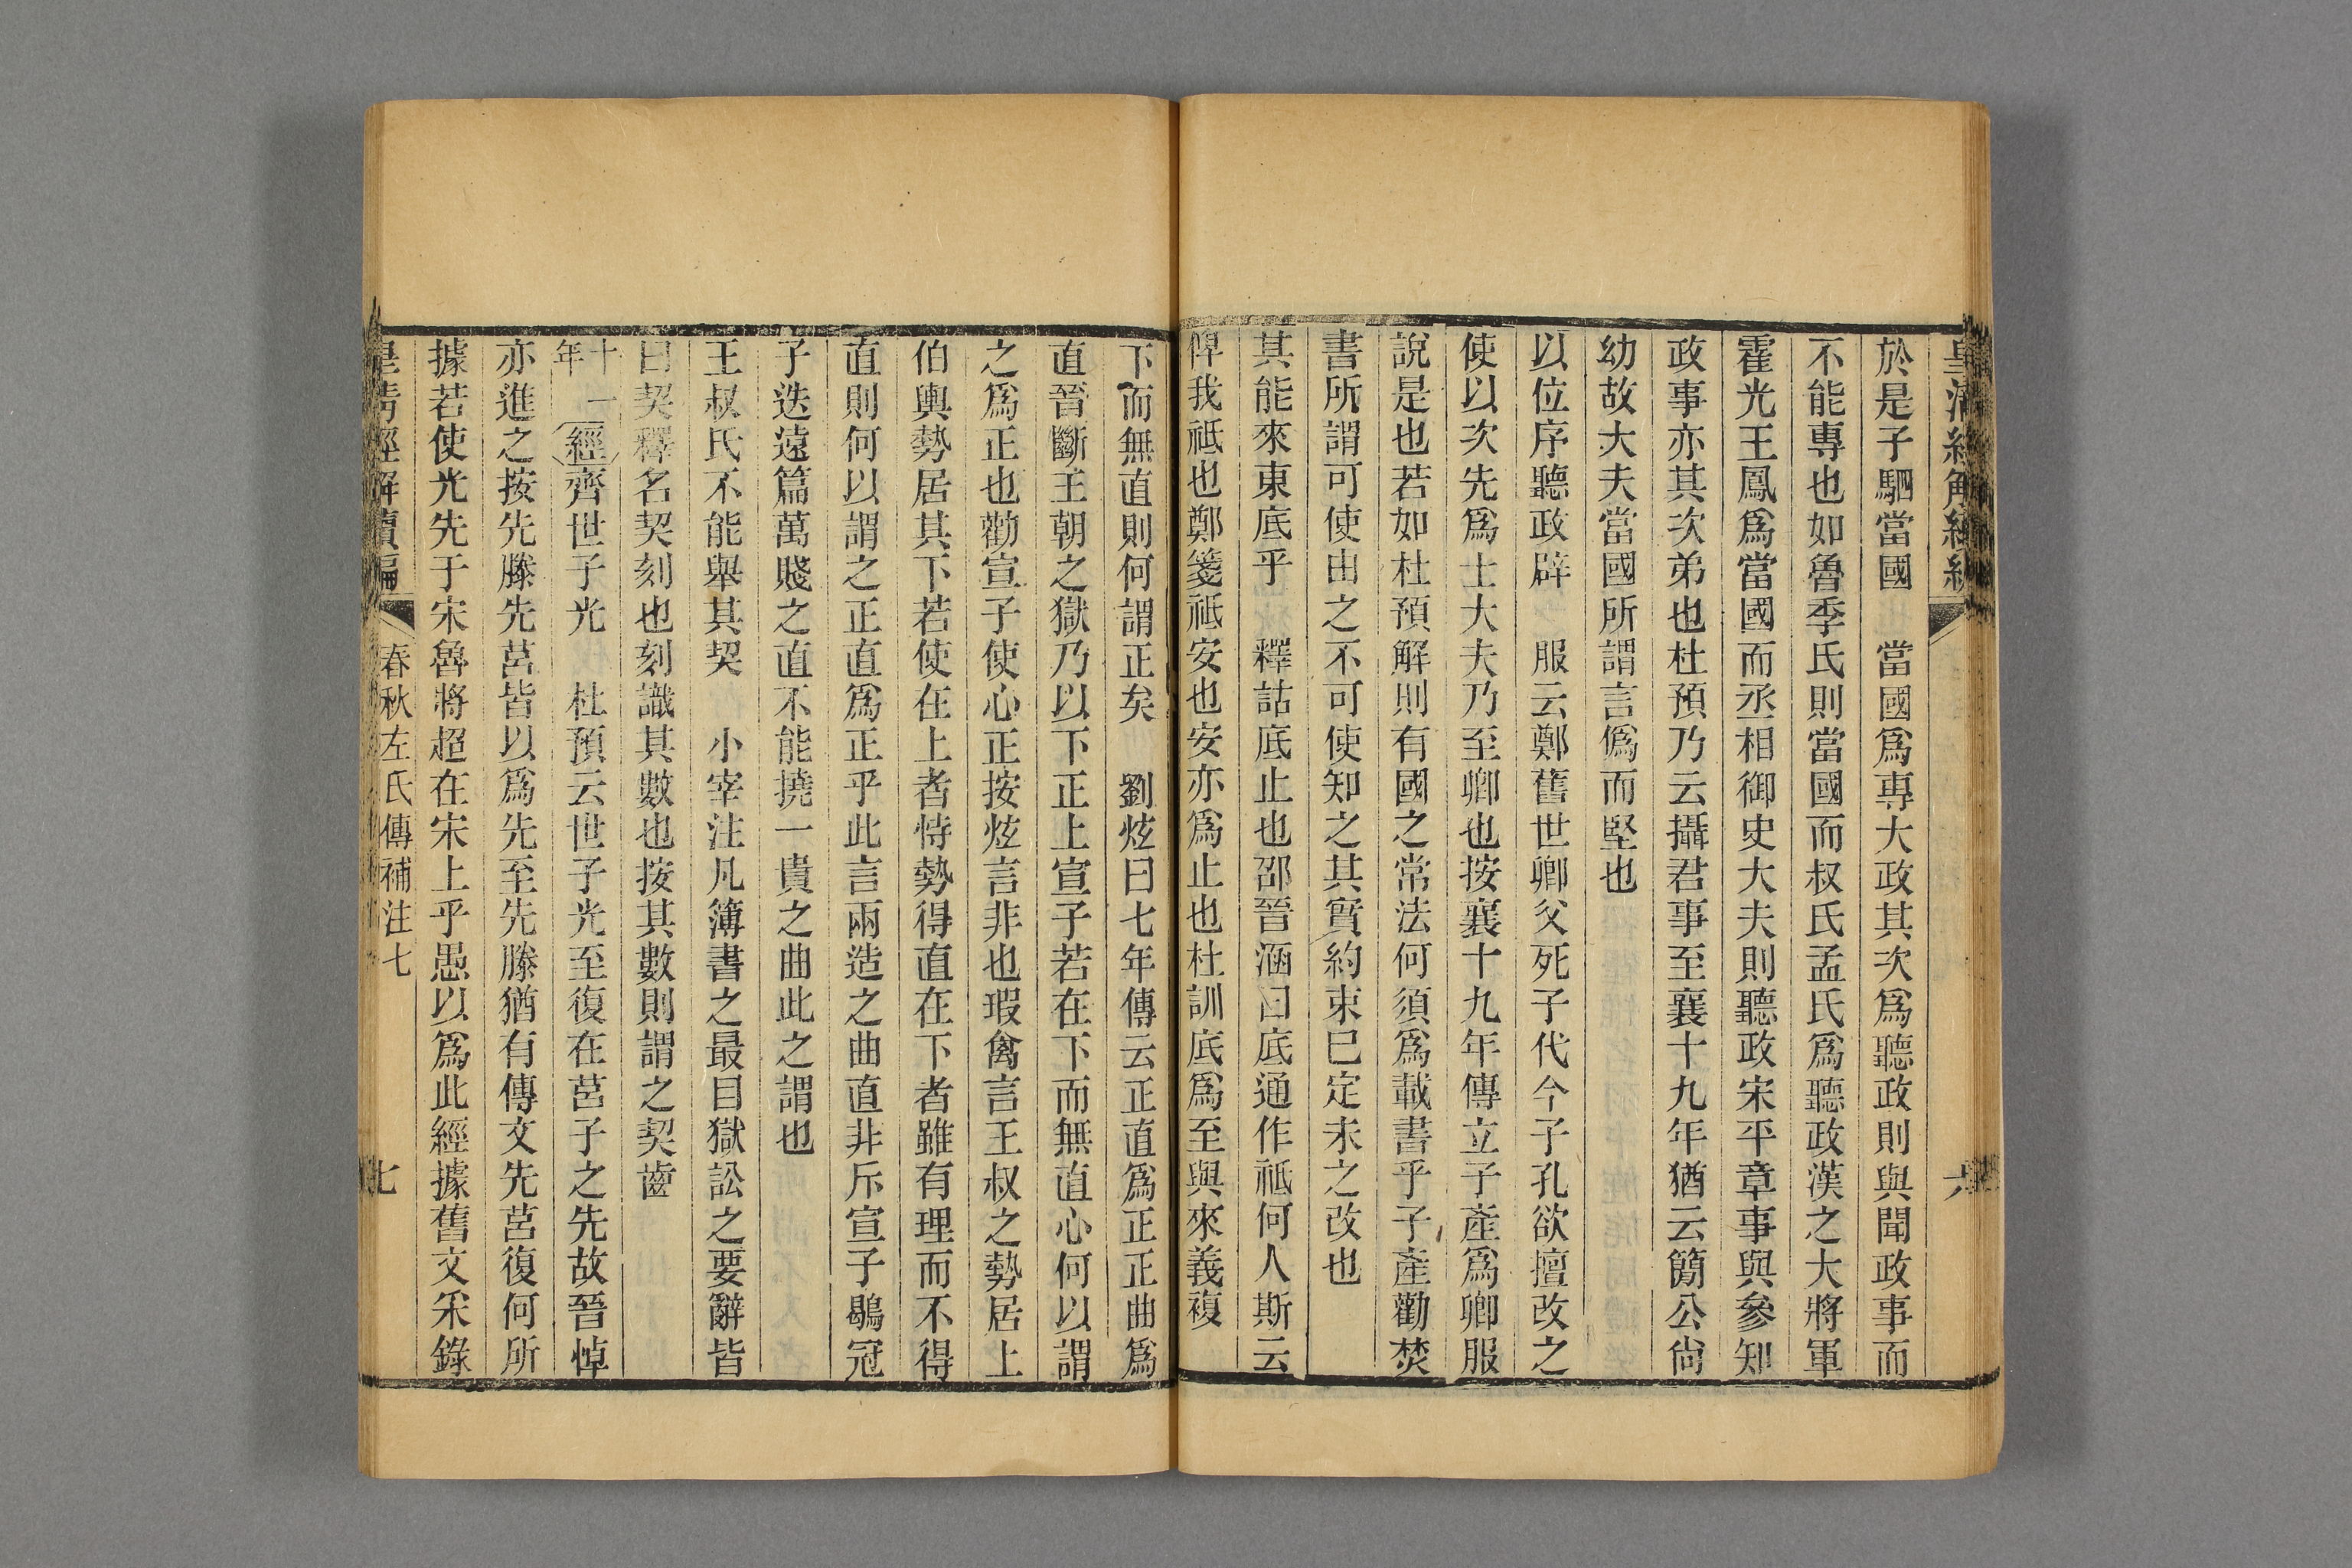 於是子駟當國　當國爲專大政其次爲聽政則與聞政事而
不能專也如魯季氏則當國而叔氏孟氏爲聽政漢之大將軍
霍光王鳳爲當國而丞相御史大夫則聽政宋平章事與參知
政事亦其次弟也杜預乃云攝君事至襄十九年猶云簡公尙
幼故大夫當國所謂言僞而堅也
以位序聽政辟　服云鄭舊世卿父死子代今子孔欲擅改之
使以次先爲士大夫乃至卿也按襄十九年傳立子產爲卿服
說是也若如杜預解則有國之常法何須爲載書乎子產勸焚
書所謂可使由之不可使知之其實約束已定未之改也
其能來東底乎　釋詁底止也邵晉涵曰底通作祗何人斯云
俾我祗也鄭箋祗安也安亦爲止也杜訓底爲至與來義複
下而無直則何謂正矣　劉炫曰七年傳云正直爲正正曲爲
直晉斷王朝之獄乃以下正上宣子若在下而無直心何以謂
之爲正也勸宣子使心正按炫言非也瑕禽言王叔之勢居上
伯輿勢居其下若使在上者恃勢得直在下者雖有理而不得
直則何以謂之正直爲正乎此言兩造之曲直非斥宣子鶡冠
子迭遠篇萬賤之直不能撓一貴之曲此之謂也
王叔氏不能舉其契　小宰注凡簿書之最目獄訟之要辭皆
曰契釋名契刻也刻識其數也按其數則謂之契齒
十一年經齊世子光　杜預云世子光至復在莒子之先故晉悼
亦進之按先滕先莒皆以爲先至先滕猶有傳文先莒復何所
據若使光先于宋魯將超在宋上乎愚以爲此經據舊文釆錄
皇清經解續編　春秋左氏傳補注七　七